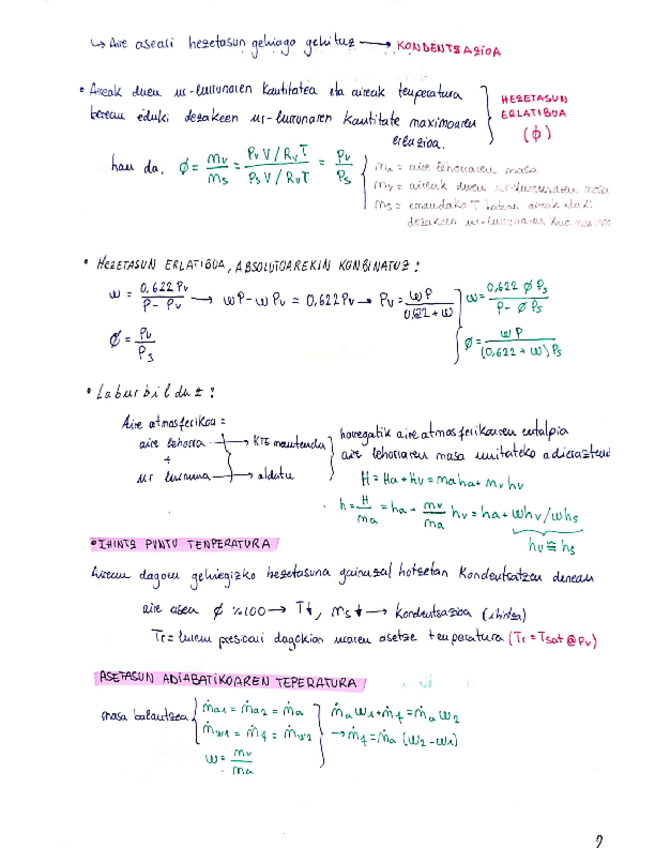 ↳ Aire aseari hezetasun gehiago gehituz → KONDENTSAZIOA
• Aireak duen ur-lurrunaren kantitatea eta aireak tenperatura
berean eduki dezakeen ur-lurrunaren kantitate maximoaren
erlazioa.
HEZETASUN
ERLATIBOA
(ϕ)
hau da, ϕ = mv/ms = PvV/RvT / PsV/RvT = Pv/Ps
ma = aire lehorraren masa
mv = aireak duen ur-lurrunaren masa
ms = emandako T batean aireak eduki
dezakeen ur-lurrunaren
• HEZETASUN ERLATIBOA, ABSOLUTOAREKIN KONBINATUZ:
ω = 0,622Pv / P-Pv → ωP-ωPv = 0,622Pv → Pv = ωP / 0,622+ω
ω = 0,622 ϕ Ps / P-ϕPs
ϕ = Pv/Ps
ϕ = ωP / (0,622+ω)Ps
• Laburbilduz:
Aire atmosferikoa =
aire lehorra → KTE mantendu
+
ur lurruna → aldatu
horregatik aire atmosferikoaren entalpia
aire lehorraren masa unitateko adierazten
H = Ha + Hv = maha + mvhv
h = H/ma = ha + mv/ma hv = ha + ωhv/ωhs
hv ≅ hs
• IHINTZ PUNTU TENPERATURA
Airean dagoen gehiegizko hezetasuna gainazal hotzetan kondentsatzen denean
aire asea ϕ %100 → T↓, ms↓ → kondentsazioa (ihintza)
Tr = lurrun presioari dagokion uraren asetze tenperatura (Tr = Tsat@Pv)
ASETASUN ADIABATIKOAREN TEPERATURA
masa balantzea
ṁa1 = ṁa2 = ṁa
ṁw1 = ṁf = ṁw2
ω = mv/ma
ṁaω1+ṁf = ṁaω2
→ ṁf = ṁa (ω2-ω1)